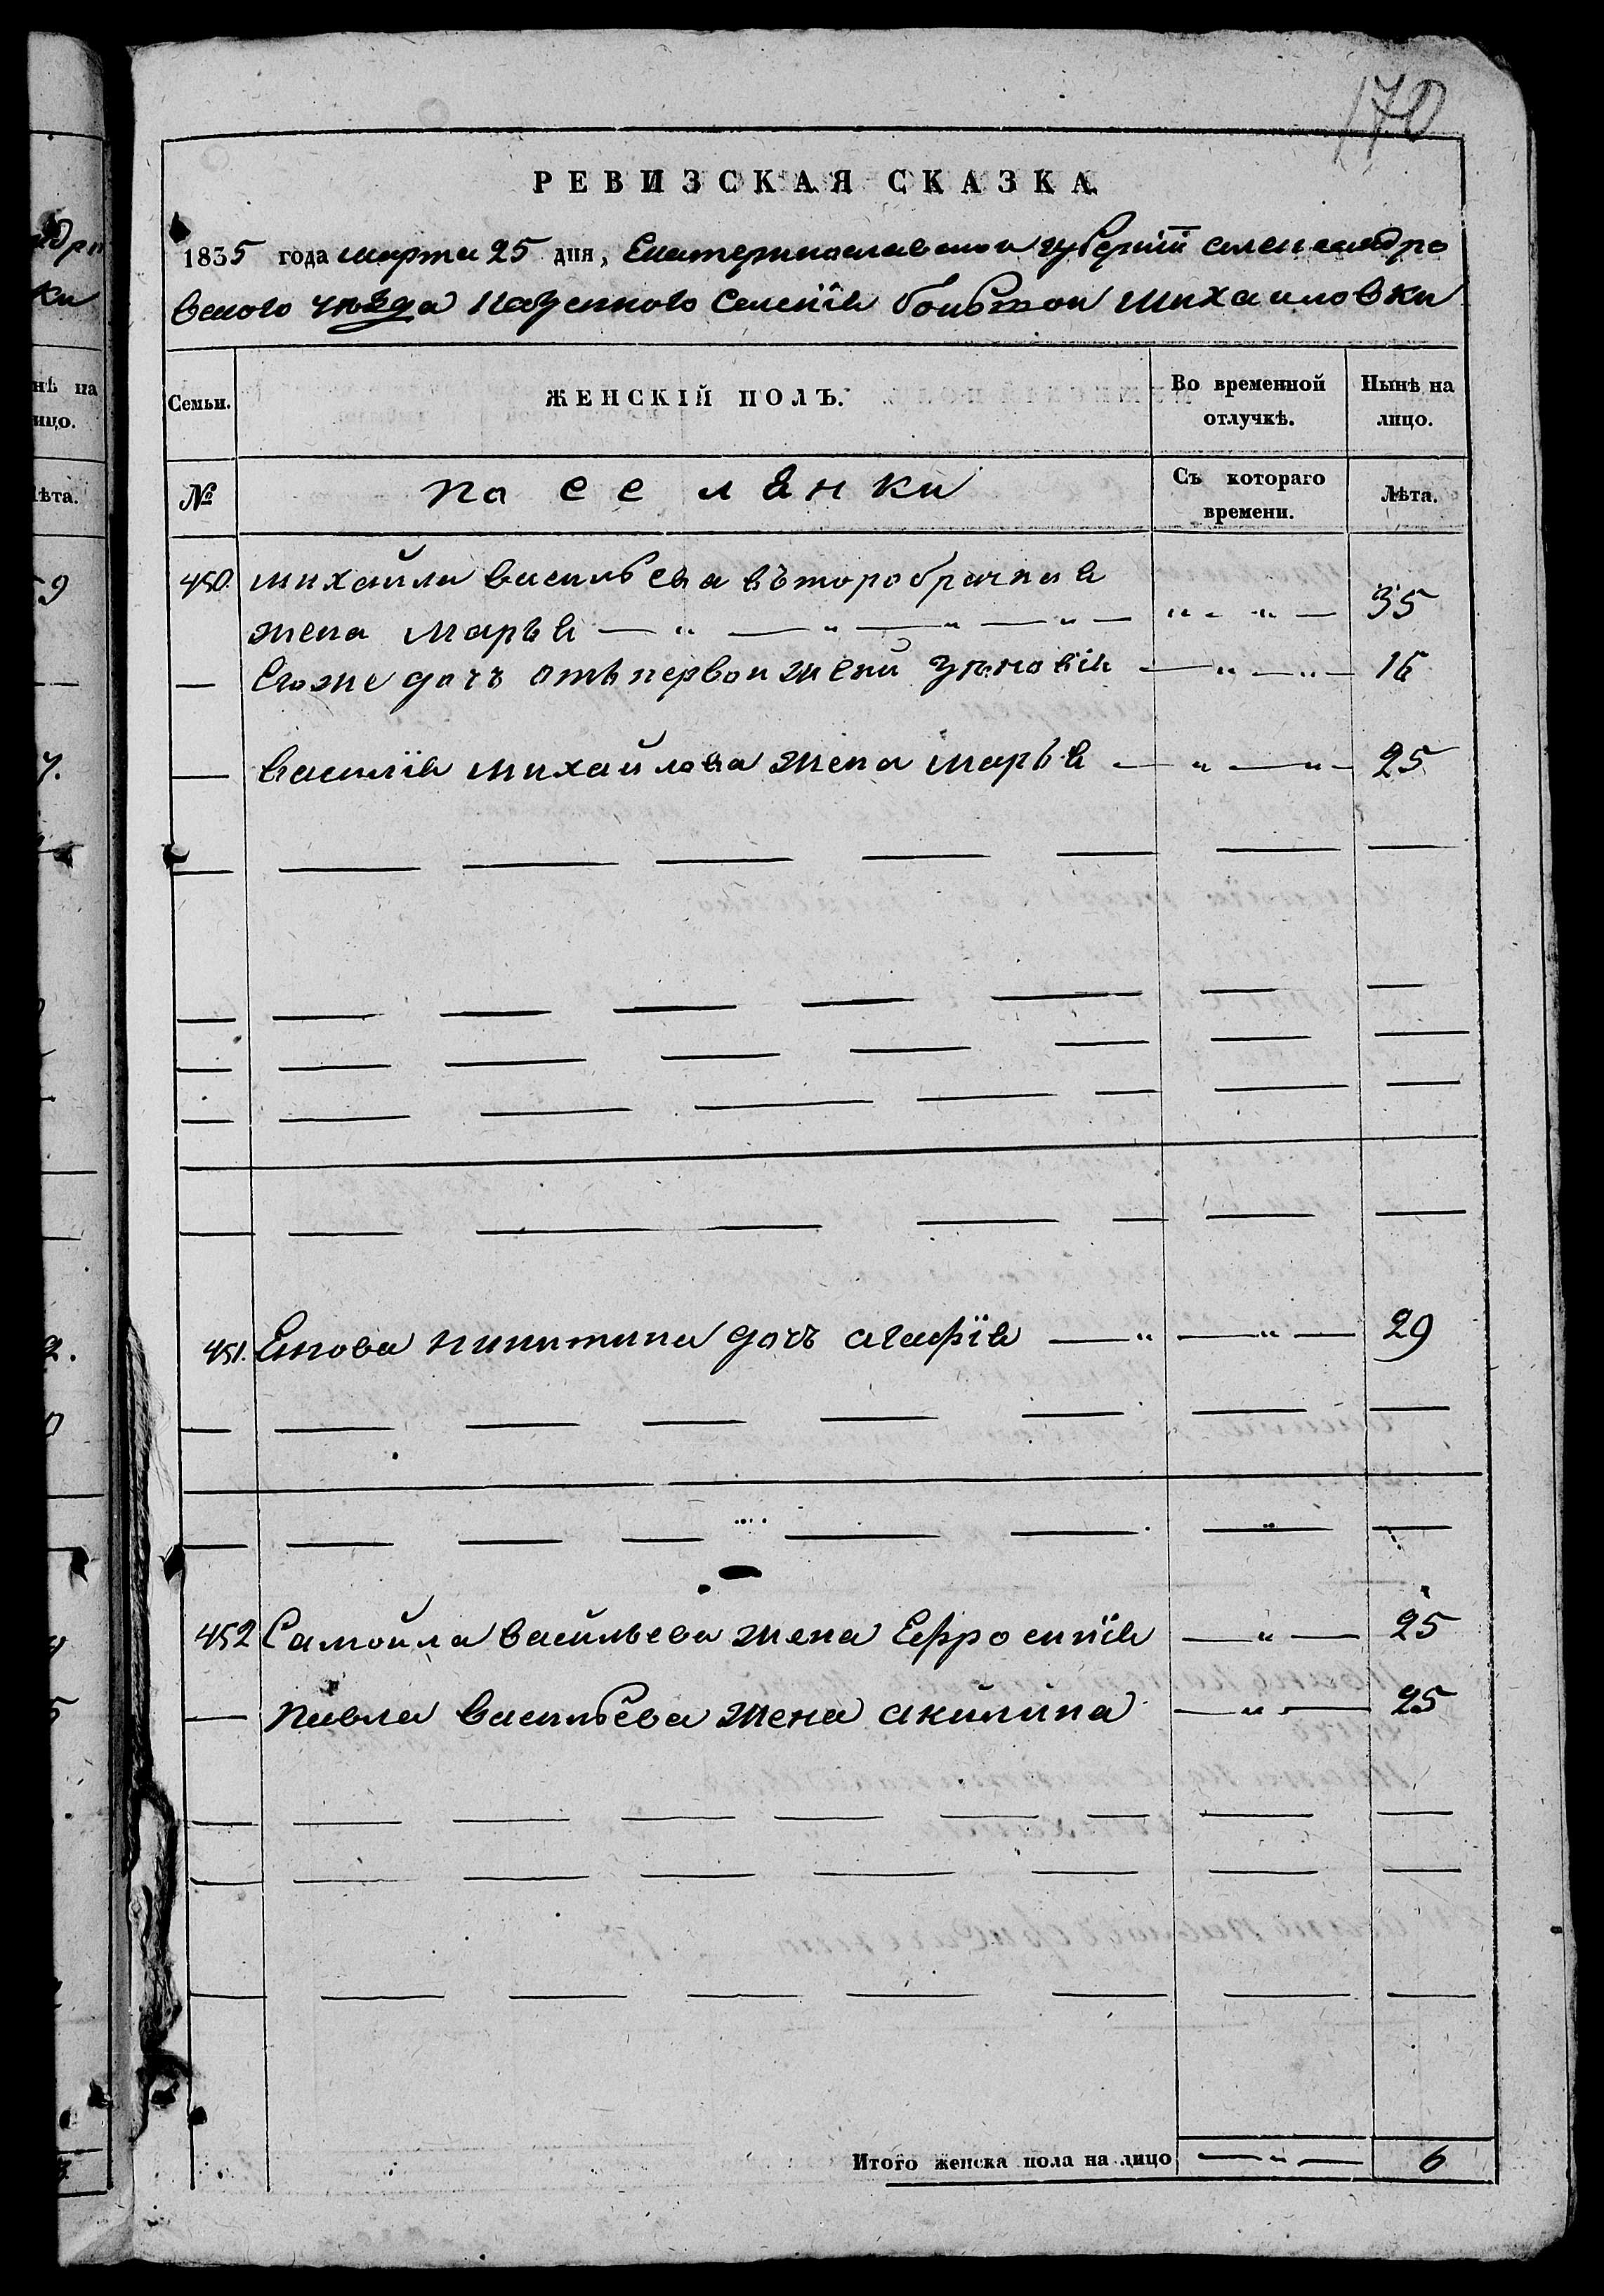 170
РЕВИЗСКАЯ СКАЗКА
1835 года марта 25 дня, Екатеринославской губернїи александро
вского уѣзда казенного Селенїя большой михайловки
Семьи. ЖЕНСКІЙ ПОЛЪ. Во временной отлучкѣ. Нынѣ на лицо.
№ посселянки Съ котораго времени. Лѣта.
450. михайла васильева второбрачная
жена Марья 35
Егоже дочъ отъ первой жены 16
василїя михайлова жена марья 25
451. никитина дочъ агафїя 29
452 Самойла васильева жена Ефросинїя 25
павла васильева жена акилина 25
Итого женска пола на лицо 6